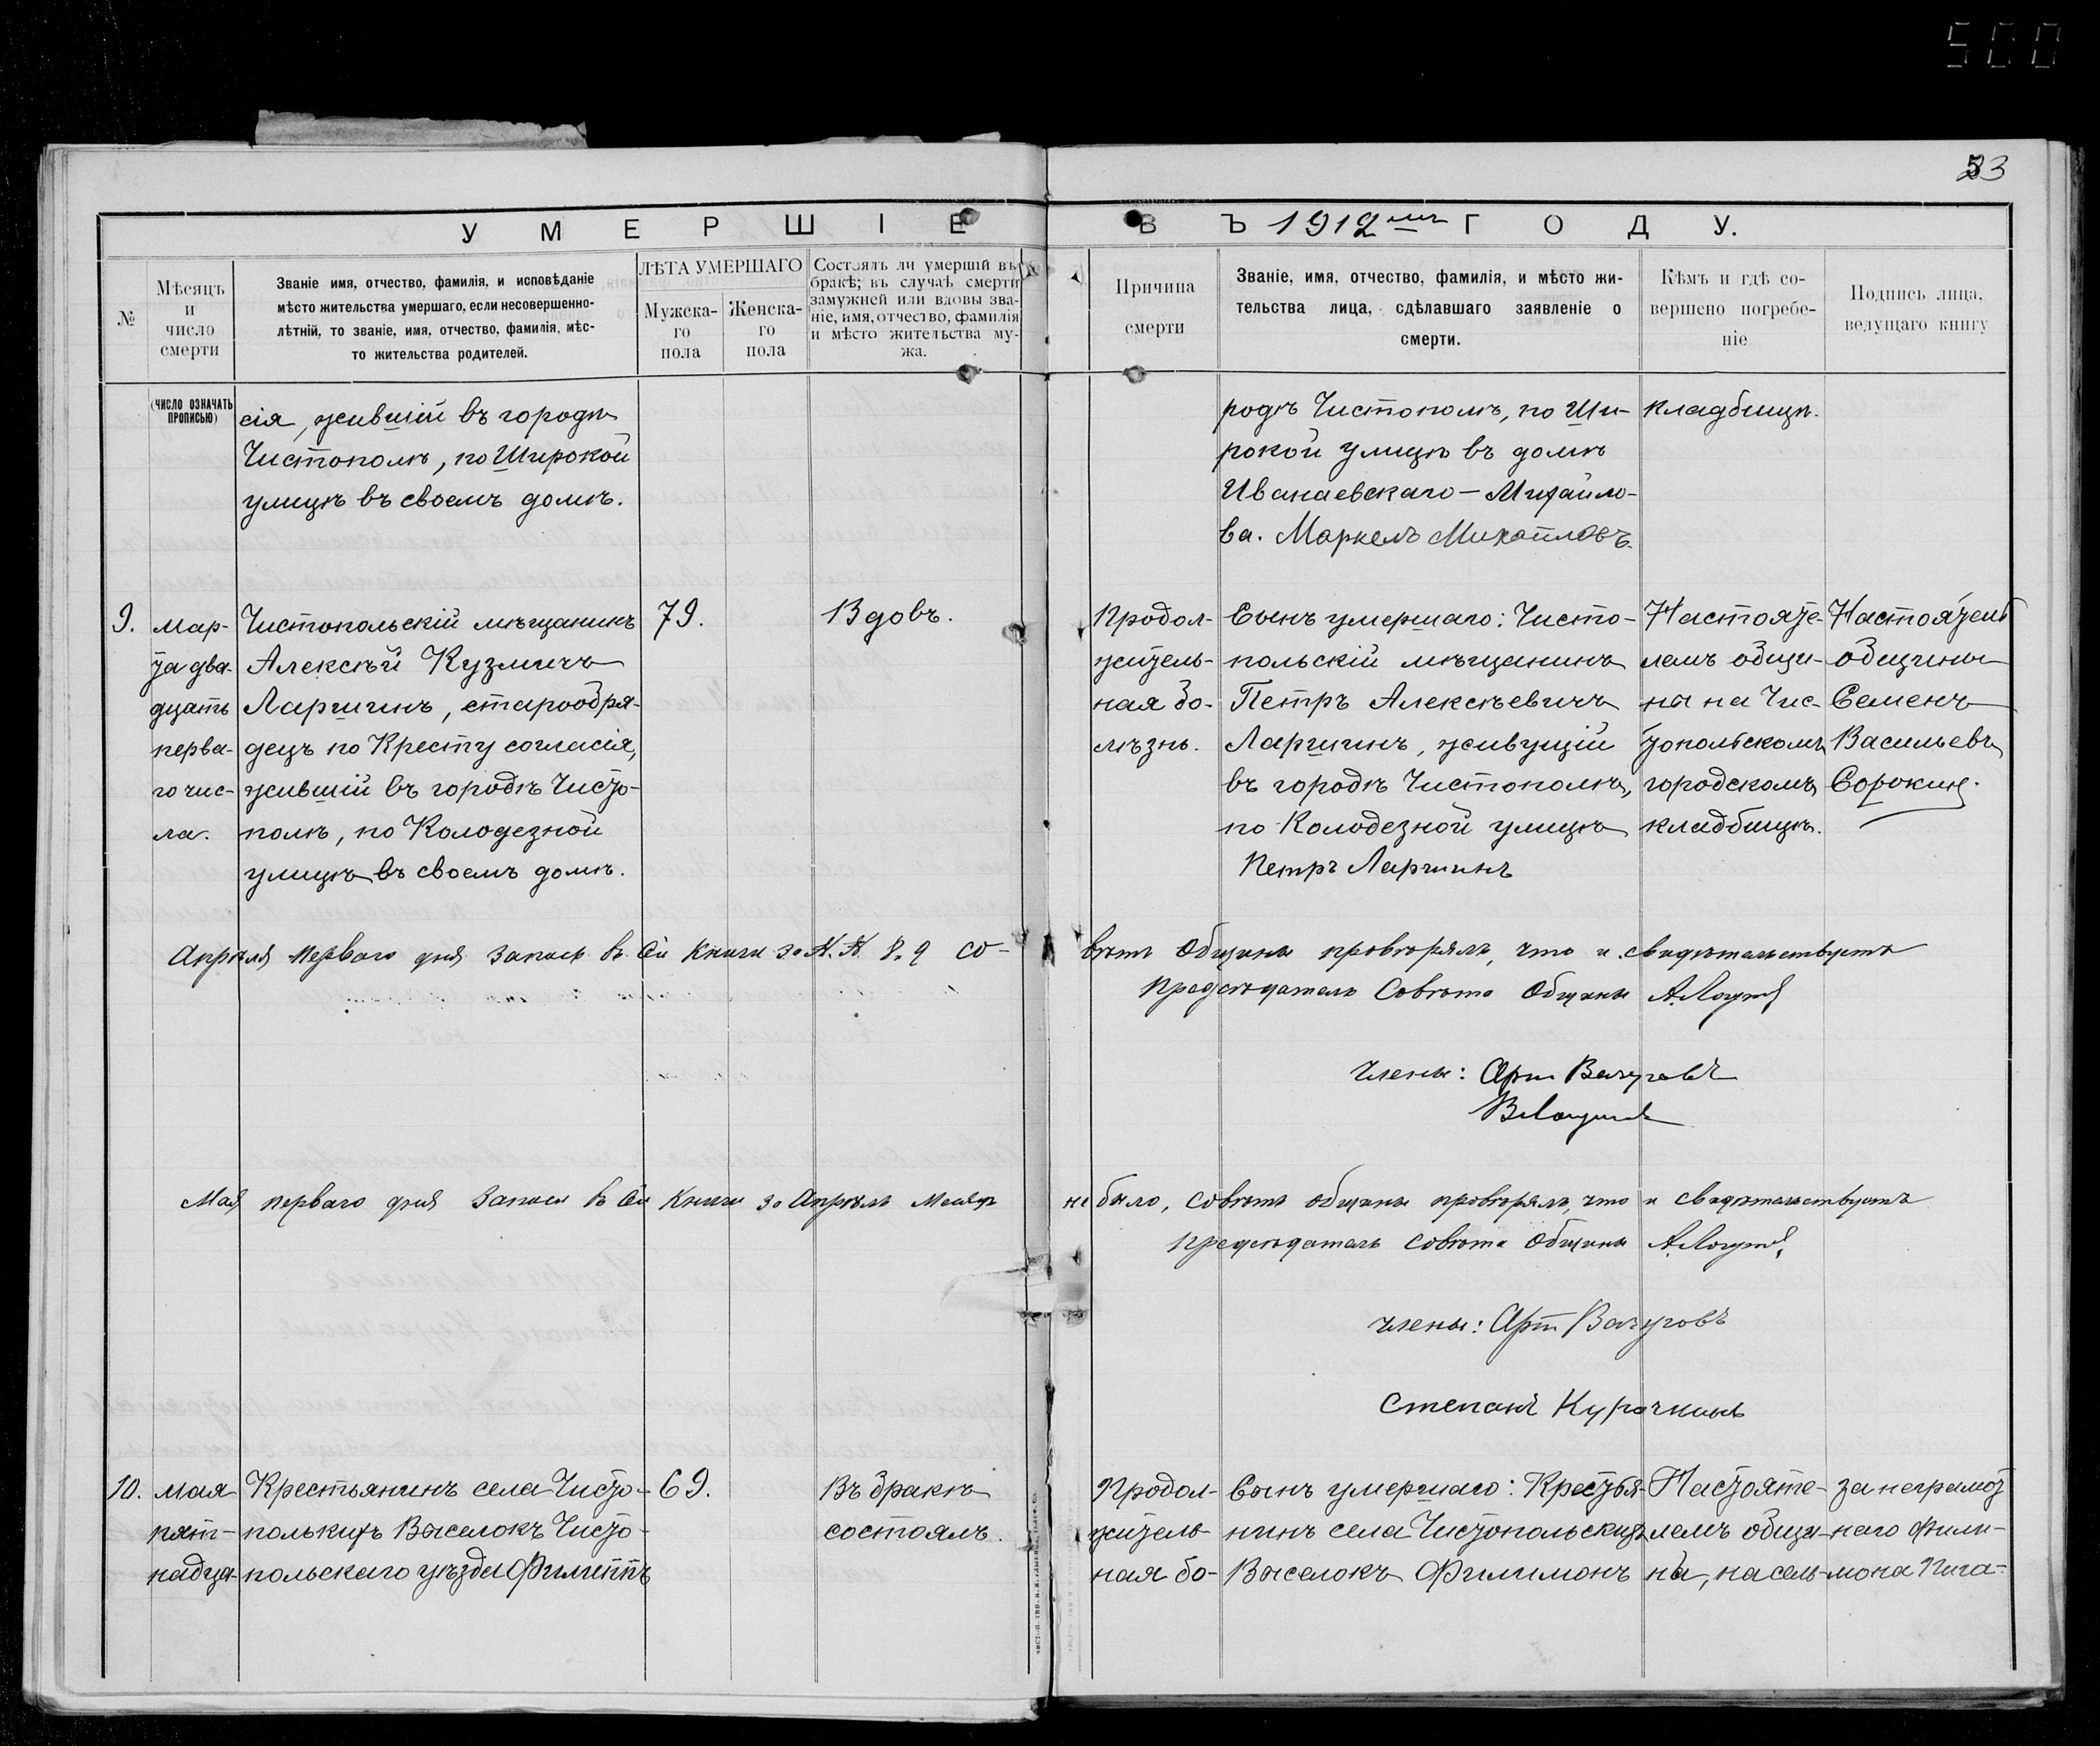 500
33
УМЕРШІЕ
ВЪ 1912 мъ ГОДУ.
№
Мѣсяцъ
и
число
смерти
Званіе имя, отчество, фамилія, и исповѣданіе
мѣсто жительства умершаго, если несовершенно-
лѣтній, то званіе, имя, отчество, фамилія, мѣс-
то жительства родителей.
ЛѢТА УМЕРШАГО
Мужска-
го
пола
Женска-
го
пола
Состоялъ ли умершій въ
бракѣ; въ случаѣ смерти
замужней или вдовы зва-
ніе, имя, отчество, фамилія
и мѣсто жительства му-
жа.
Причина
смерти
Званіе, имя, отчество, фамилія, и мѣсто жи-
тельства лица, сдѣлавшаго заявленіе о
смерти.
Кѣмъ и гдѣ со-
вершено погребе-
ніе
Подпись лица,
ведущаго книгу
(ЧИСЛО ОЗНАЧАТЬ
ПРОПИСЬЮ)
сія, жившій въ городѣ
Чистополѣ, по Широкой
улицѣ въ своемъ домѣ.
родѣ Чистополѣ, по Ши-
рокой улицѣ въ домѣ
Иванаевскаго – Михайло-
ва. Маркелъ Михайловъ.
кладбищѣ.
9.
Мар-
та два-
дцать
перва-
го чис-
ла.
Чистопольскій мѣщанинъ
Алексѣй Кузмичъ
Ларшинъ, старообря-
децъ по Кресту согласія,
жившій въ городѣ Чисто-
полѣ, по Колодезной
улицѣ въ своемъ домѣ.
79.
Вдовъ.
Продол-
житель-
ная бо-
лѣзнь.
Сынъ умершаго: Чисто-
польскій мѣщанинъ
Петръ Алексѣевичъ
Ларшинъ, живущій
въ городѣ Чистополѣ,
по Колодезной улицѣ
Петръ Ларшинъ
Настояте-
лемъ общи-
ны на Чис-
топольскомъ
городскомъ
кладбищѣ.
Настоятель
общины
Семенъ
Васильевъ
Сорокинъ.
Апрѣля перваго дня запись въ сей книги за №.№ 8. 9 со-
вѣтъ Общины провѣрялъ, что и свидѣтельствуетъ
Предсѣдатель Совѣта Общины
Члены: Арт Вачуговъ
Мая перваго дня записи въ сей книги за Апрѣль Месяц
не было, совѣтъ общины провѣрялъ, что и свидѣтельствуетъ
Предсѣдатель совѣта Общины
члены: Арт Вачуговъ
Степанъ Курочкинъ
10.
мая
пят-
надца-
Крестьянинъ села Чисто-
полькихъ Выселокъ Чисто-
польскаго уѣзда Филиппъ
69.
Въ бракѣ
состоялъ.
Продол-
житель-
ная бо-
Сынъ умершаго: Крестья-
нинъ села Чистопольскихъ
Выселокъ Филимонъ
Настояте-
лемъ общи-
ны, на сель-
За неграмот
наго Фили-
мона Пига-